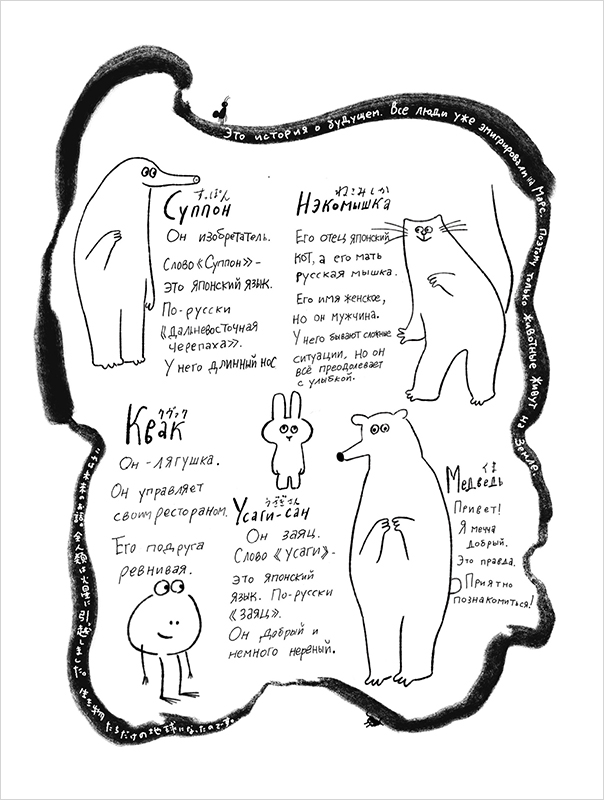 Это история о будущем. Все люди уже эмигрировали на Марс. Поэтому только животные живут на Земле.
すっぽん
Суппон
Он изобретатель.
Слово «Суппон» -
это японский язык.
По-русски
«дальневосточная
черепаха».
У него длинный нос
ねこみしか
Нэкомышка
Его отец японский
кот, а его мать
русская мышка.
Его имя женское,
но он мужчина.
У него бывают сложные
ситуации, но он
всё преодолевает
с улыбкой.
クヴァック
Квак
Он - лягушка.
Он управляет
своим рестораном.
Его подруга
ревнивая.
うさぎさん
Усаги-сан
Он заяц.
Слово «усаги» -
это японский
язык. По-русски
«заяц».
Он добрый и
немного нервный.
くま
Медведь
Привет!
Я мечна
добрый.
Это правда.
Приятно
познакомиться!
これは未来のお話。全人類は火星に引越しました。生き物たちだけの地球になったのです。